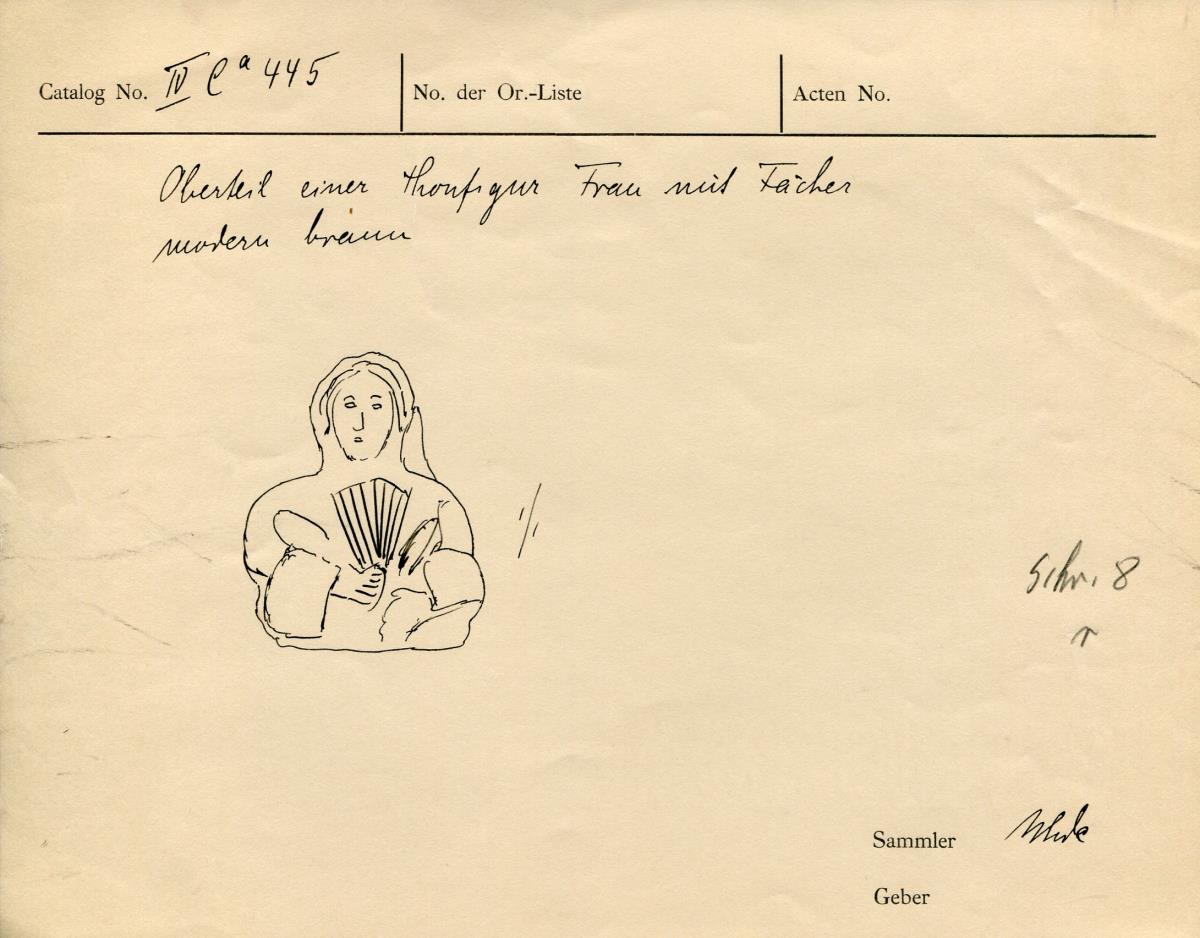 Catalog No. IV Ca 445
No. der Or.-Liste
Acten No.
Oberteil einer Thonfigur Frau mit Fächer
modern braun
1/1
Schr. 8
r
Sammler Uhde
Geber